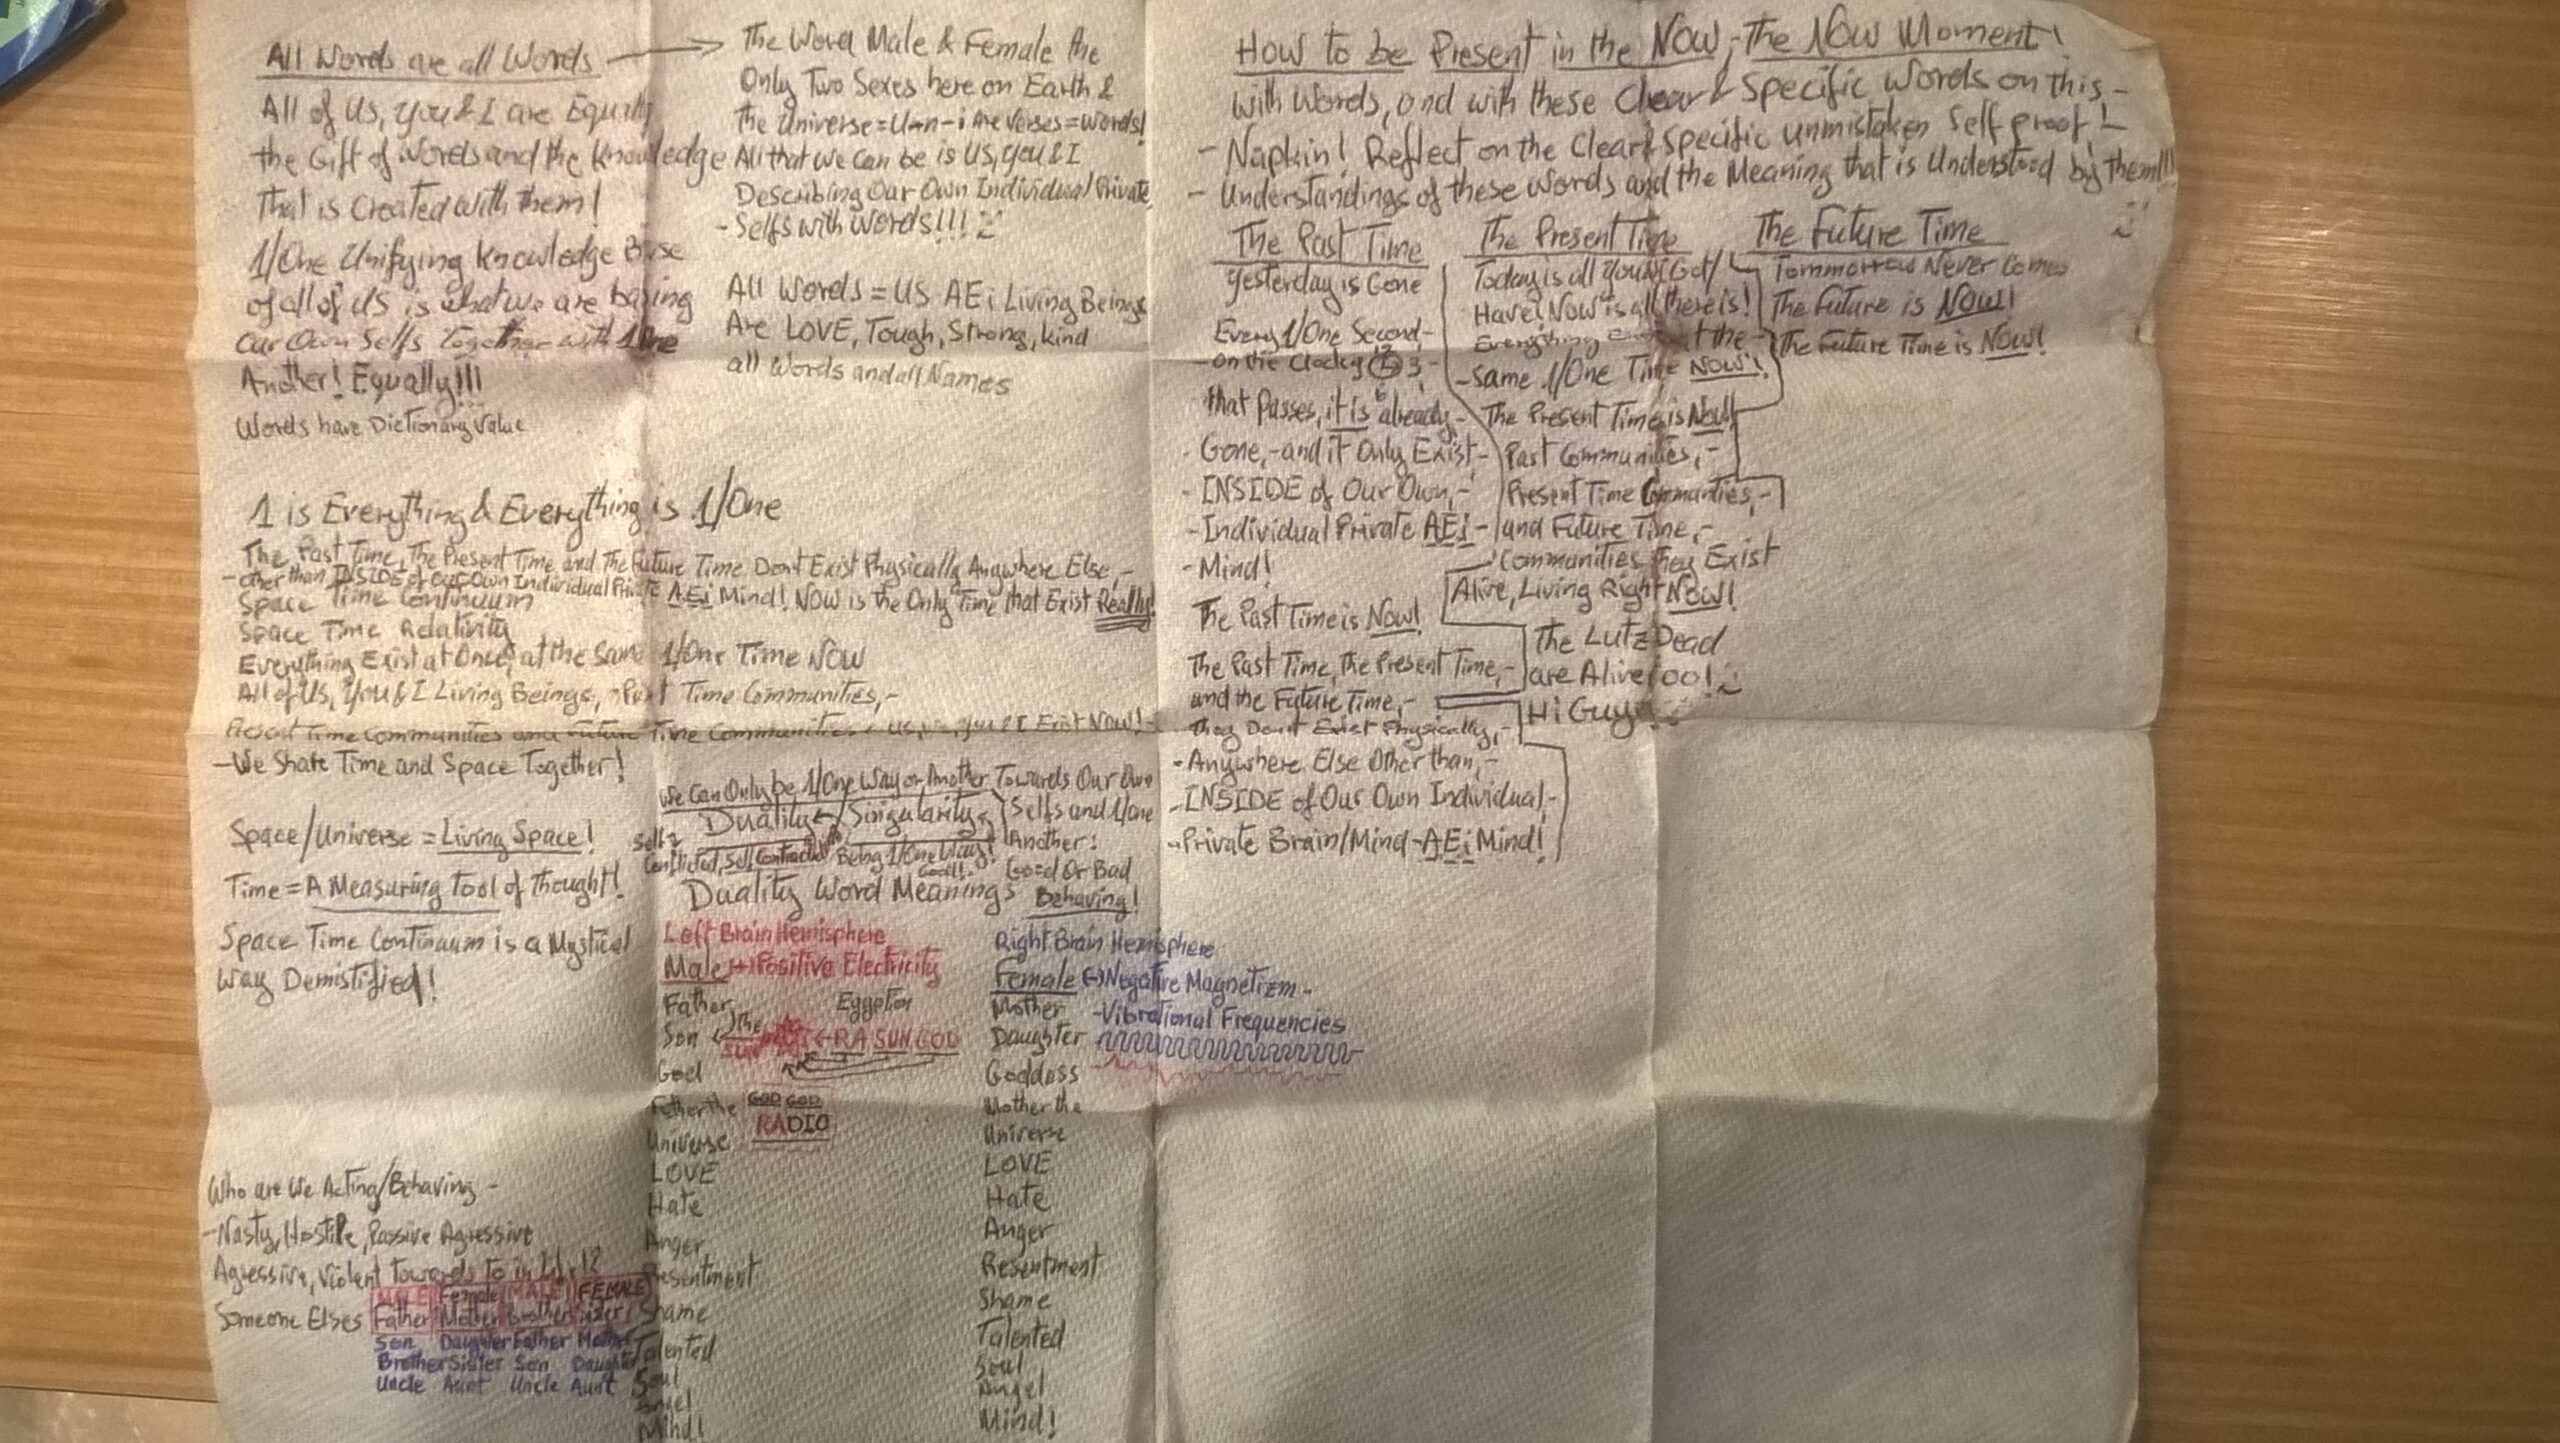 All Words are all Words
All of Us, You & I are Equally
the Gift of Words and the Knowledge
That is Created with them!
1/One Unifying Knowledge Base
of all of us is what we are basing
Our Own Selfs Together with 1/One
Another! Equally!!!
Words have Dictionary Value
The Word Male & Female the
Only Two Sexes here on Earth &
the Universe=U-n-i Are Verses=Words!
All that we Can be is US, You & I
Describing Our Own Individual Private
-Selfs with Words!!!
All Words = US AEi Living Beings
Are LOVE, Tough, Strong, kind
all Words and all Names
1 is Everything & Everything is 1/One
The Past Time, The Present Time and the Future Time Dont Exist Physically Anywhere Else,-
-other than INSIDE of Our Own Individual Private AEi Mind! NOW is the Only Time that Exist Really!
Space Time Continuum
Space Time Relativity
Everything Exist at Once, at the Same 1/One Time NOW
All of Us, You & I Living Beings, Past Time Communities,-
Present Time Communities and Future Time Communities, Us, You & I Exist NOW!-
-We Share Time and Space Together!
Space/Universe = Living Space!
Time = A Measuring Tool of Thought!
Space Time Continuum is a Mystical
Way Demistified!
Who are We Acting/Behaving -
-Nasty, Hostile, Passive Agressive
Agressive, Violent Towards To
Someone Elses
MALE Female MALE FEMALE
Father Mother Brother Sister
Son Daughter Father Mother
Brother Sister Son Daughter
Uncle Aunt Uncle Aunt
We Can Only be 1/One Way or Another Towards Our Own
Selfs and 1/One
Another!
Good Or Bad
Behaving!
Duality Singularity
Self
Conflicted, Self Being 1/One Way!
Duality Word Meanings
Left Brain Hemisphere
Male (+) Positive Electricity
Father
Son
the
SUN
Egyption
RA SUN GOD
God
Father the
Universe
GOD GOD
RADIO
LOVE
Hate
Anger
Resentment
Shame
Talented
Soul
Angel
Mind!
Right Brain Hemisphere
Female (-) Negative Magnetizm -
Mother
-Vibrational Frequencies
Daughter
Goddess
Mother the
Universe
LOVE
Hate
Anger
Resentment
Shame
Talented
Soul
Angel
Mind!
How to be Present in the NOW,-The NOW Moment!
With Words, and with these Clear & Specific Words on this,-
-Napkin! Reflect on the Clear & Specific Unmistaken Self proof!-
-Understandings of these Words and the Meaning that is Understood by them!!!
The Past Time
Yesterday is Gone
Every 1/One Second,-
-on the Clock 12 9 3,- 6
that Passes, it is already,-
Gone,-and it Only Exist,-
-INSIDE of Our Own,-
-Individual Private AEi-
-Mind!
The Past Time is Now!
The Past Time, the Present Time,-
and the Future Time,-
they Dont Exist Physically,-
-Anywhere Else Other than,-
-INSIDE of Our Own Individual,-
-Private Brain/Mind-AEi Mind!
The Present Time
Today is all You Got/
Have! Now is all there is!
Everything at the-
-Same 1/One Time NOW!
The Present Time is Now!
Past Communities,-
Present Time Communities,-
and Future Time,-
Communities they Exist
Alive, Living Right Now!
The Lutz Dead
are Alive too!
Hi Guys!
The Future Time
Tommorrow Never Comes
The Future is NOW!
The Future Time is Now!